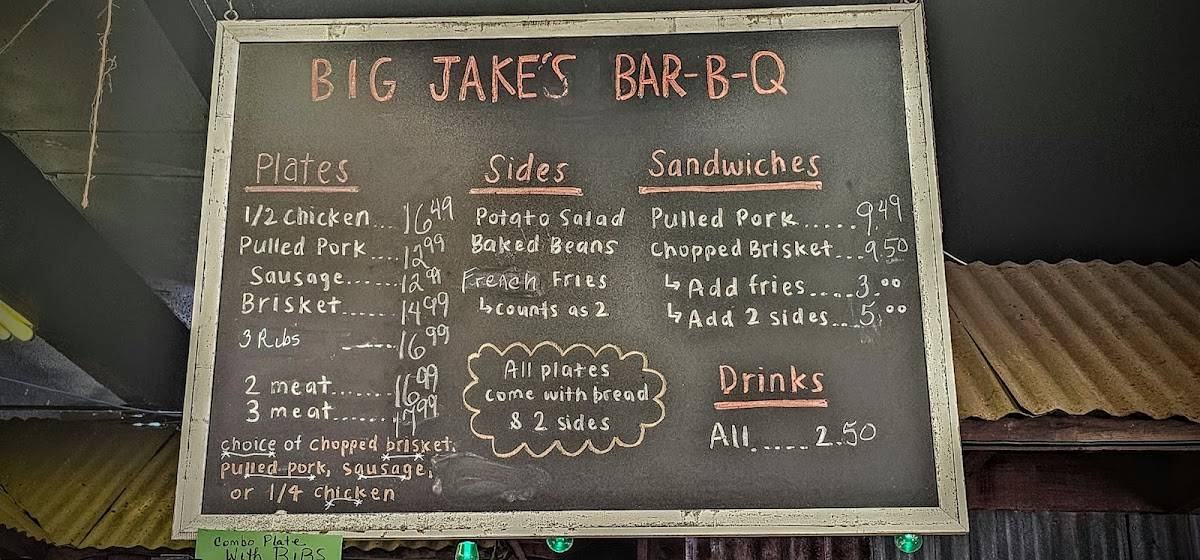 BIG JAKE'S BAR-B-Q
Plates
1/2 Chicken...16.49
Pulled Pork....12.99
Sausage......12.99
Brisket......14.99
3 Ribs ——......16.99
2 meat.......16.99
3 meat.......17.99
choice of chopped brisket,
pulled pork, sausage,
or 1/4 chicken
Sides
Potato Salad
Baked Beans
French Fries
↳counts as 2
All plates
come with bread
& 2 sides
Sandwiches
Pulled Pork......9.49
Chopped Brisket...9.50
↳Add fries.....3.00
↳Add 2 sides...5.00
Drinks
All......2.50
Combo Plate
With RIBS